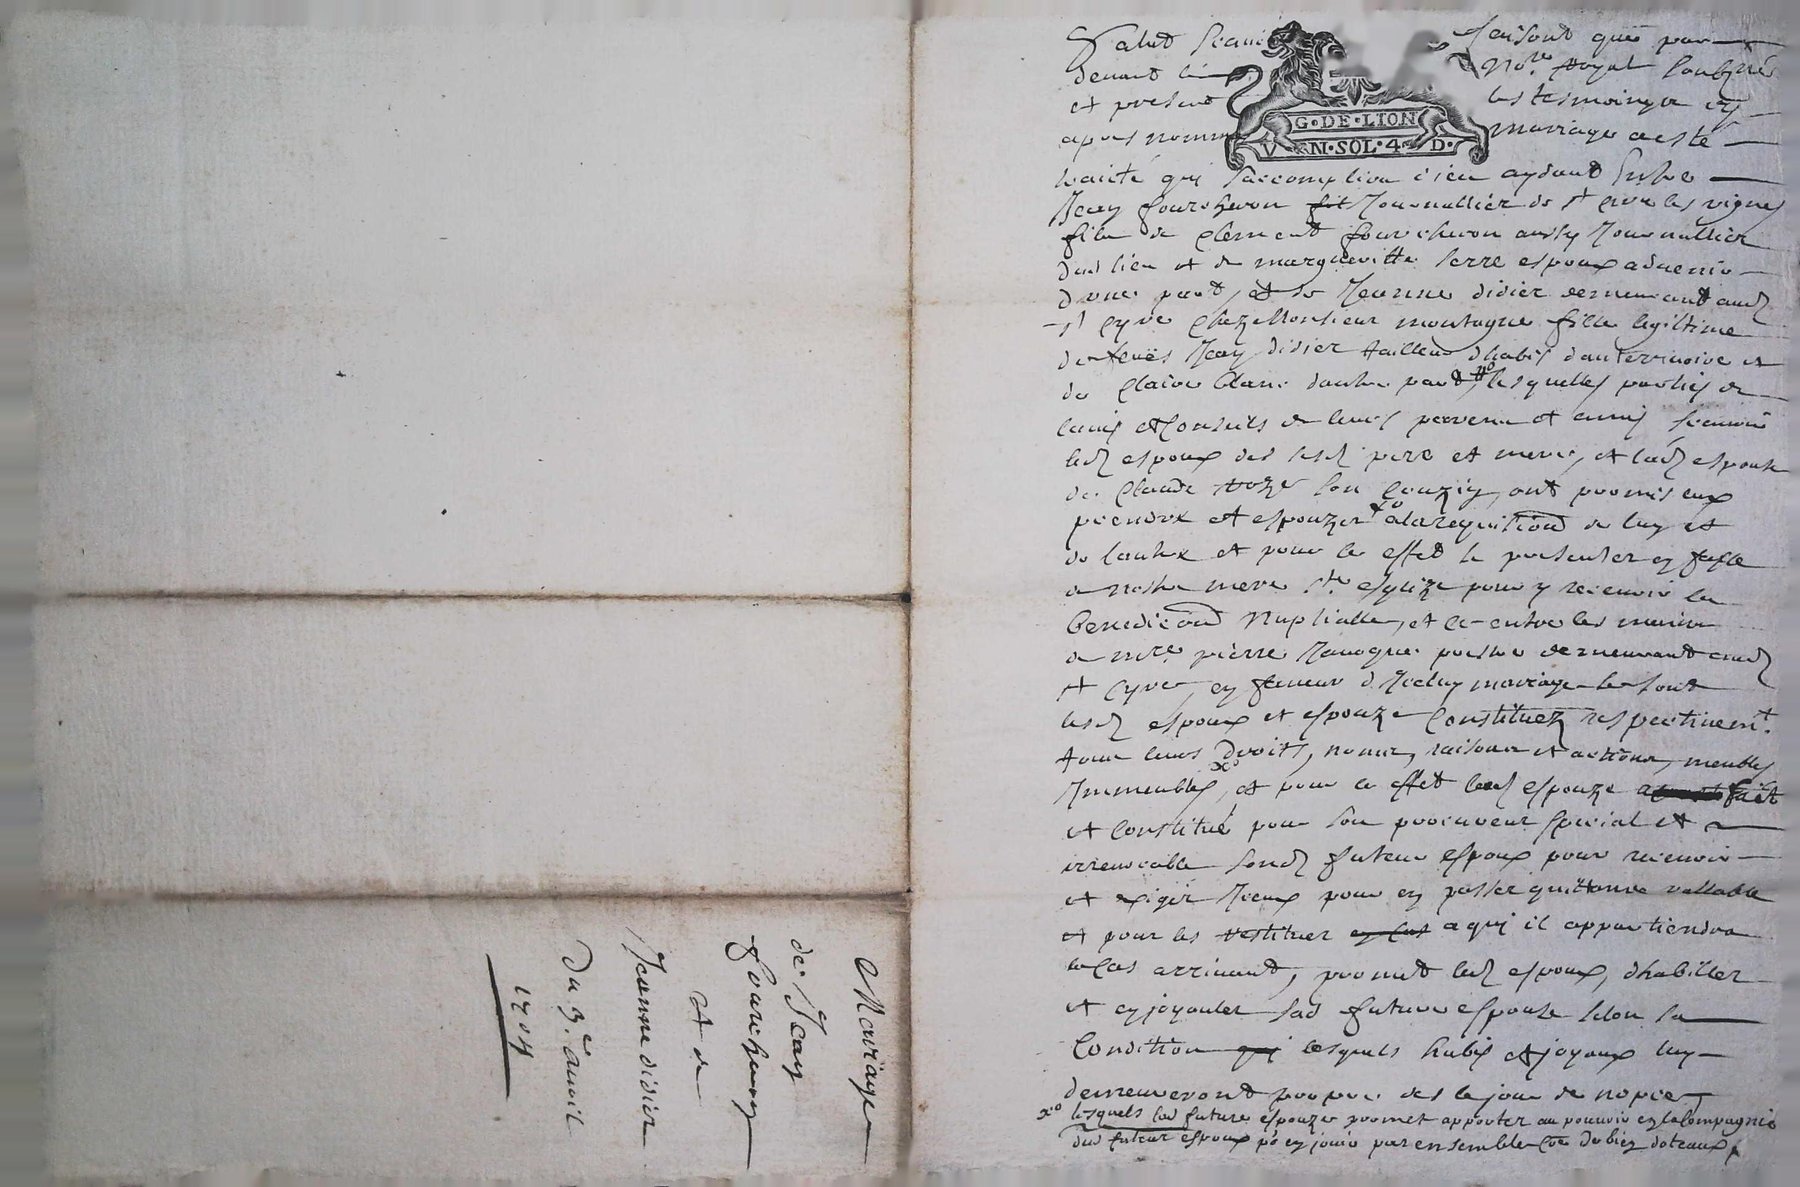 Salut scavoir faisons que par
devant le Nore royal soubzné
et present les tesmoings cy
apres nommés mariage a esté
traicté qui saccomplira dieu aydant Entre
Jean fourcheron fit Journallier de St cire les vignes
filz de Clement fourcheron aussy Journallier
dud lieu et de margueritte serre espoux advenir
d'une part, et de Jeanne didier demeurant aud
St Cyre Chez Monsieur montagne fille legitime
de feuës Jean didier tailleur d'habis dauterrivoire et
de Claire Blanc dautre part, lesquelles parties de
lavis et Conseils de leurs parens et amis scavoir
led espoux des sesd pere et mere, et lad espouse
de Claude son Couzin, ont promis eux
prendre et espouzer a la requision de luy et
de lautre et pour ce effet se presenter en face
de nostre mere Ste esglize pour y recevoir la
benediction Nuptialle, et ce entre les mains
de mre pierre prestre demeurant aud
St Cyre, en faveur d'Jceluy mariage se sont
lesd espoux et espouze Constituez respectivemt
tous leurs Droits, noms, raisons et actions, meubles
Jmmeubles, xo et pour ce effet lad espouze a fait
et Constitué pour son procureur special et
irrevocable sond futeur espoux pour recevoir
et exiger Jceux pour en passer quittance vallable
et pour les restituer en cas a qui il appartiendra
le Cas arrivant, promet led espoux, dhabiller
et enjoyouler sad future espouse selon sa
Condition qui lesquels habis et joyaux luy
demeureront propre des le jour de nopce
xo lesquels lad future espouze promet apporter au pouvoir et la Compagnie
dud futeur espoux po en jouir par ensemble Coe de bien doteaux
Mariage
de Jean
fourcheron
et de
Jeanne didier
Du 3e avril
1704
G·DE·LION
VN·SOL·4·D·